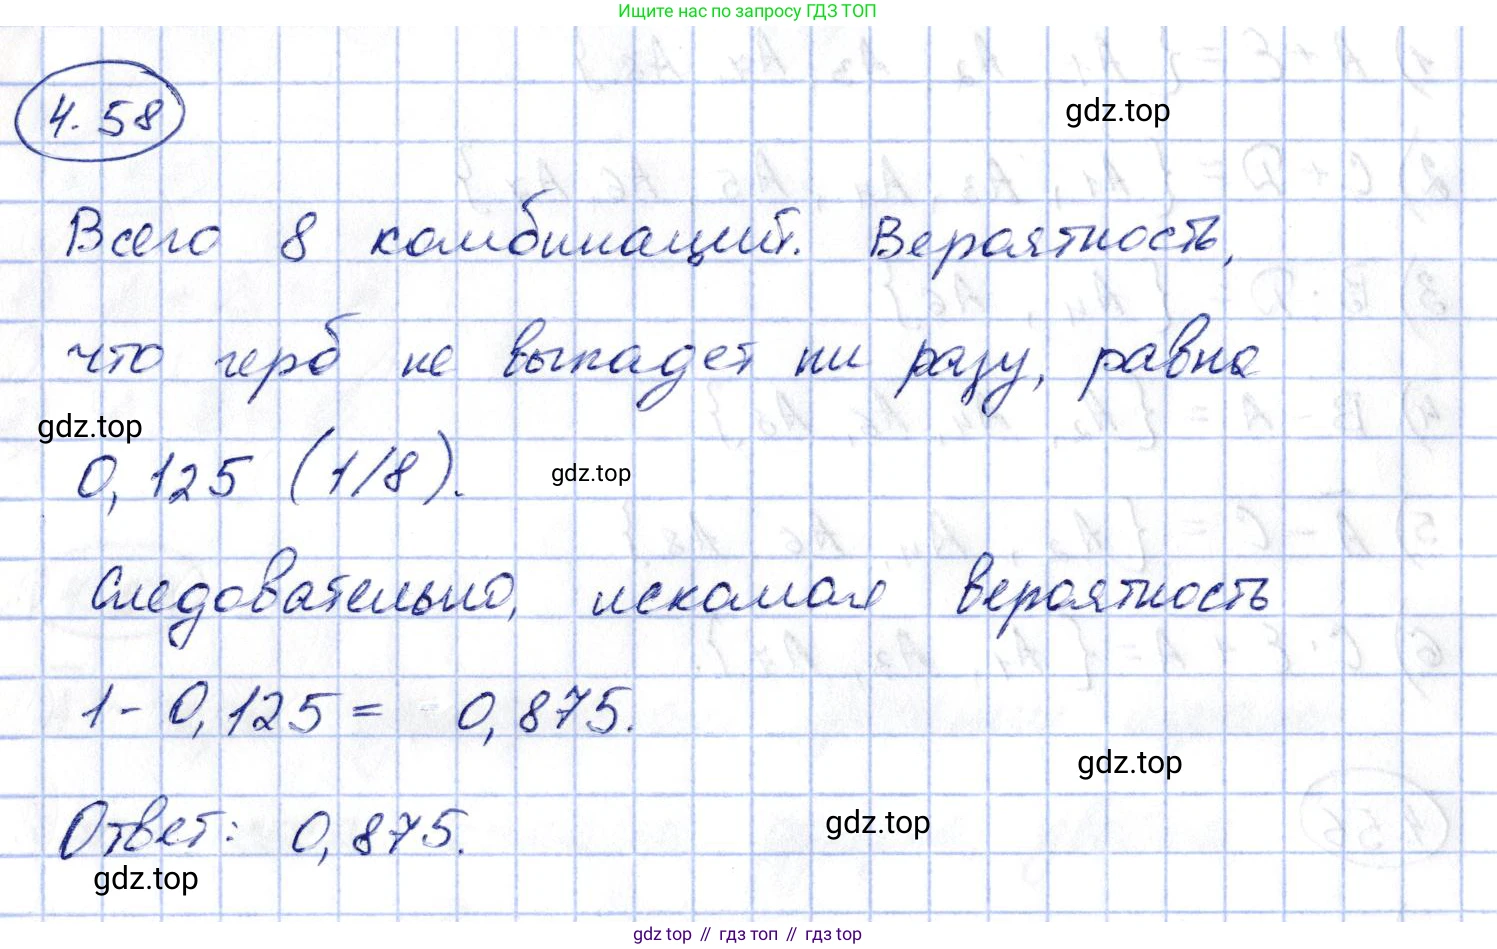 Ищите нас по запросу ГДЗ ТОП
4.58
gdz.top
Всего 8 комбинаций. Вероятность,
что герб не выпадет ни разу, равна
gdz.top
0,125 (1/8).
gdz.top
Следовательно, искомая вероятность
1 - 0,125 = 0,875.
gdz.top
Ответ: 0,875.
gdz.top
gdz.top
gdz top // гдз топ // гдз top